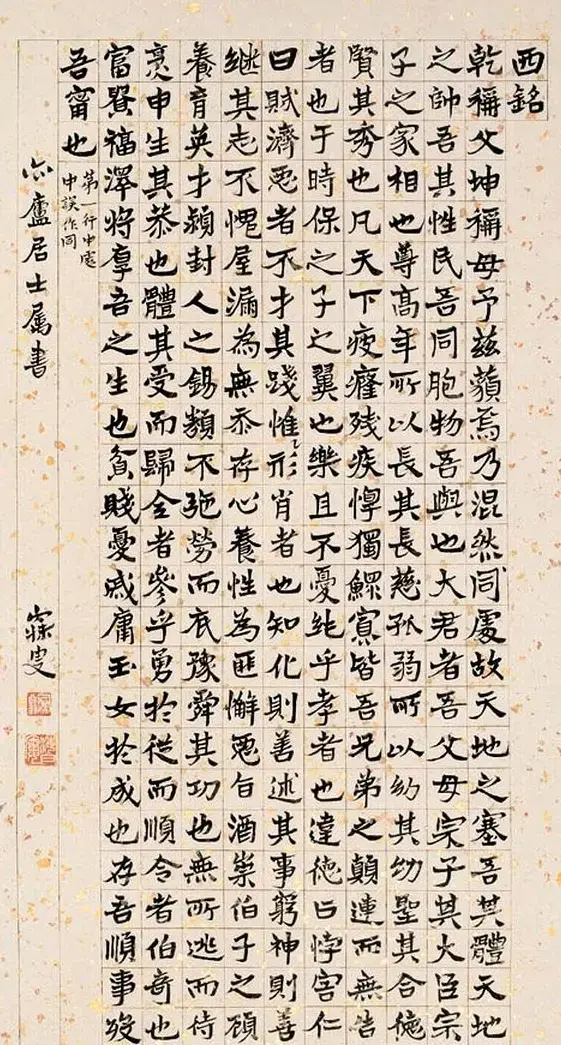 西銘
乾稱父坤稱母予兹藐焉乃混然同處故天地之塞吾其體天地
之帥吾其性民吾同胞物吾與也大君者吾父母宗子其大臣宗
子之家相也尊髙年所以長其長慈孤弱所以幼其幼聖其合德
賢其秀也凡天下疲癃殘疾惸獨鰥寡皆吾兄弟之顛連而無告
者也于時保之子之翼也樂且不憂純乎孝者也違德曰悖害仁
曰賊濟惡者不才其踐惟形肖者也知化則善述其事窮神則善
继其志不愧屋漏為無忝存心養性為匪懈惡旨酒崇伯子之顧
養育英才潁封人之錫類不弛勞而厎豫舜其功也無所逃而待
烹申生其恭也體其受而歸全者參乎勇於從而順令者伯奇也
富貴福澤將厚吾之生也貧賤憂戚庸玉女於成也存吾順事歿
吾甯也
第一行中處
中誤作同
亦廬居士属書
寐叟